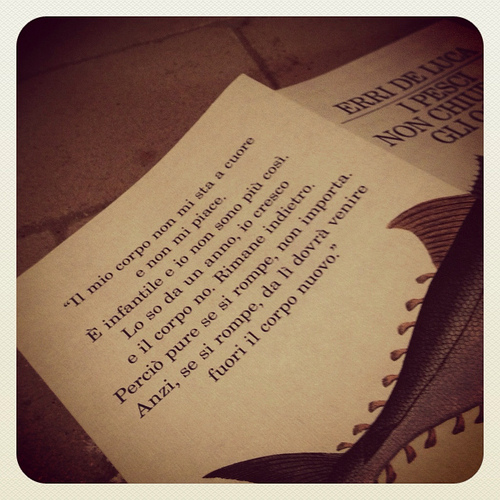 ERRI DE LUCA
I PESCI
NON
GLI
“Il mio corpo non mi sta a cuore
e non mi piace.
È infantile e io non sono più così.
Lo so da un anno, io cresco
e il corpo no. Rimane indietro.
Perciò pure se si rompe, non importa.
Anzi, se si rompe, da lì dovrà venire
fuori il corpo nuovo.”